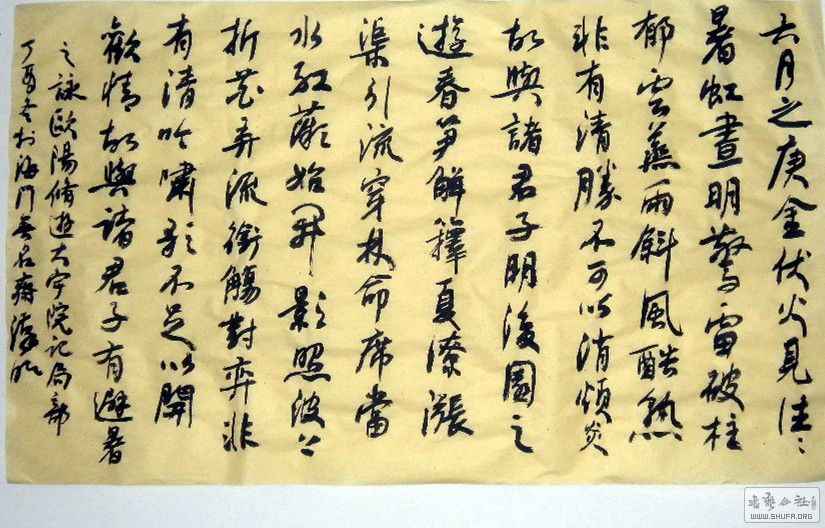 六月之庚金伏火見往々
暑虹晝明驚雷破柱
郁雲蒸雨斜風酷熱
非有清勝不可以消煩炎
故與諸君子明後園之
遊春笋解籜夏潦漲
渠引流穿林命席當
水紅薇始開影照波上
折花弄流銜觴對弈非
有清吟嘯歌不足以開
歡情故與諸君子有避暑
之詠歐陽脩遊大字院記局部
丁酉冬於海門無名齋
書法公社
WWW.SHUFA.ORG